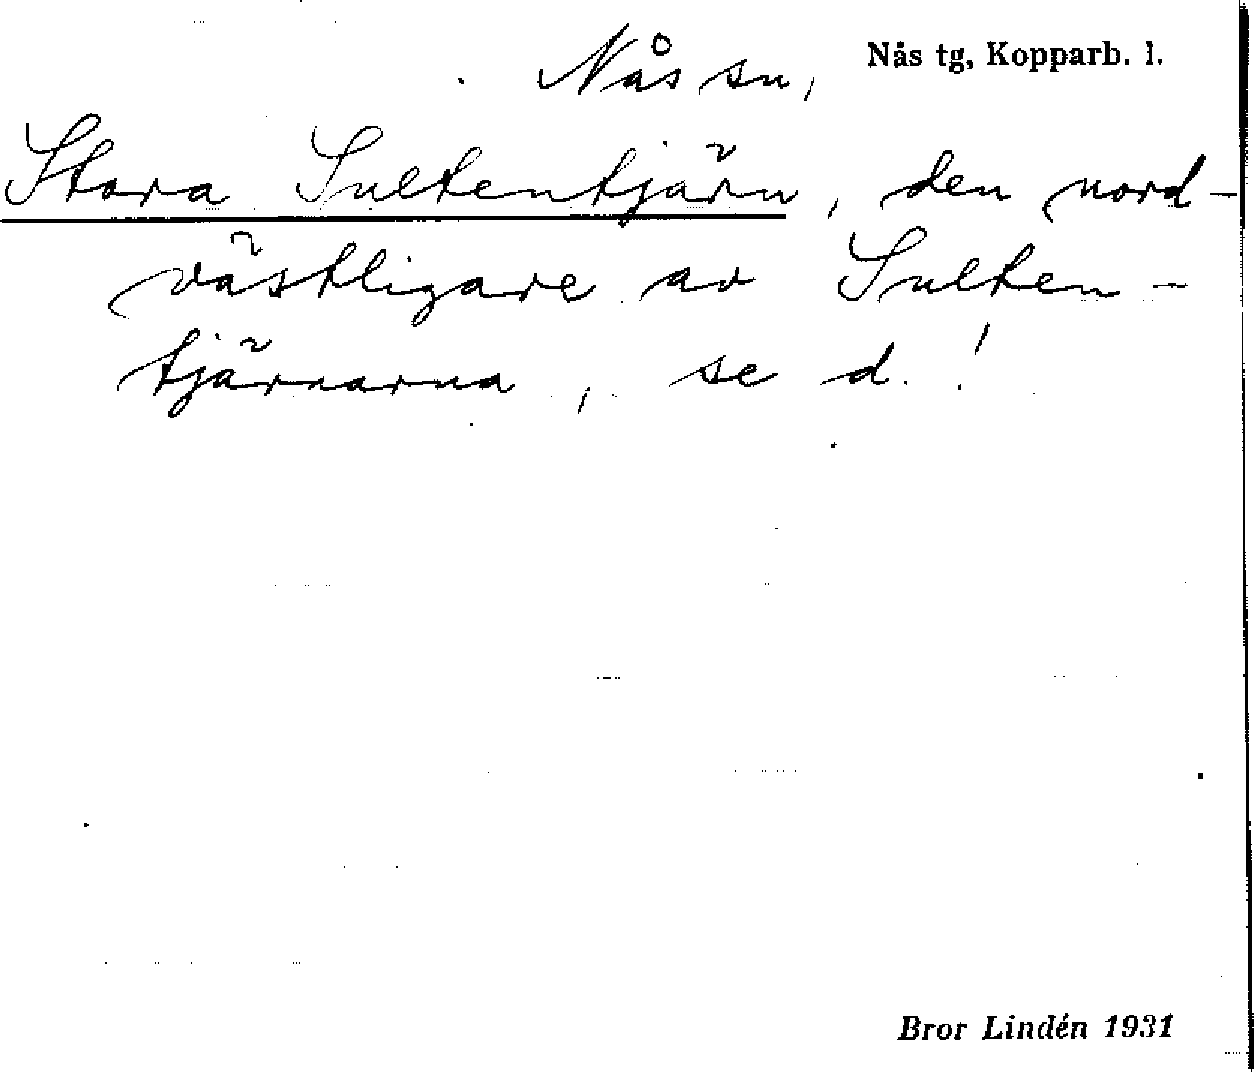 Nås sn, Nås tg, Kopparb. l.
Stora Sultentjärn, den nord-
västligare av Sulten-
tjärnarna, se d. !
Bror Lindén 1931